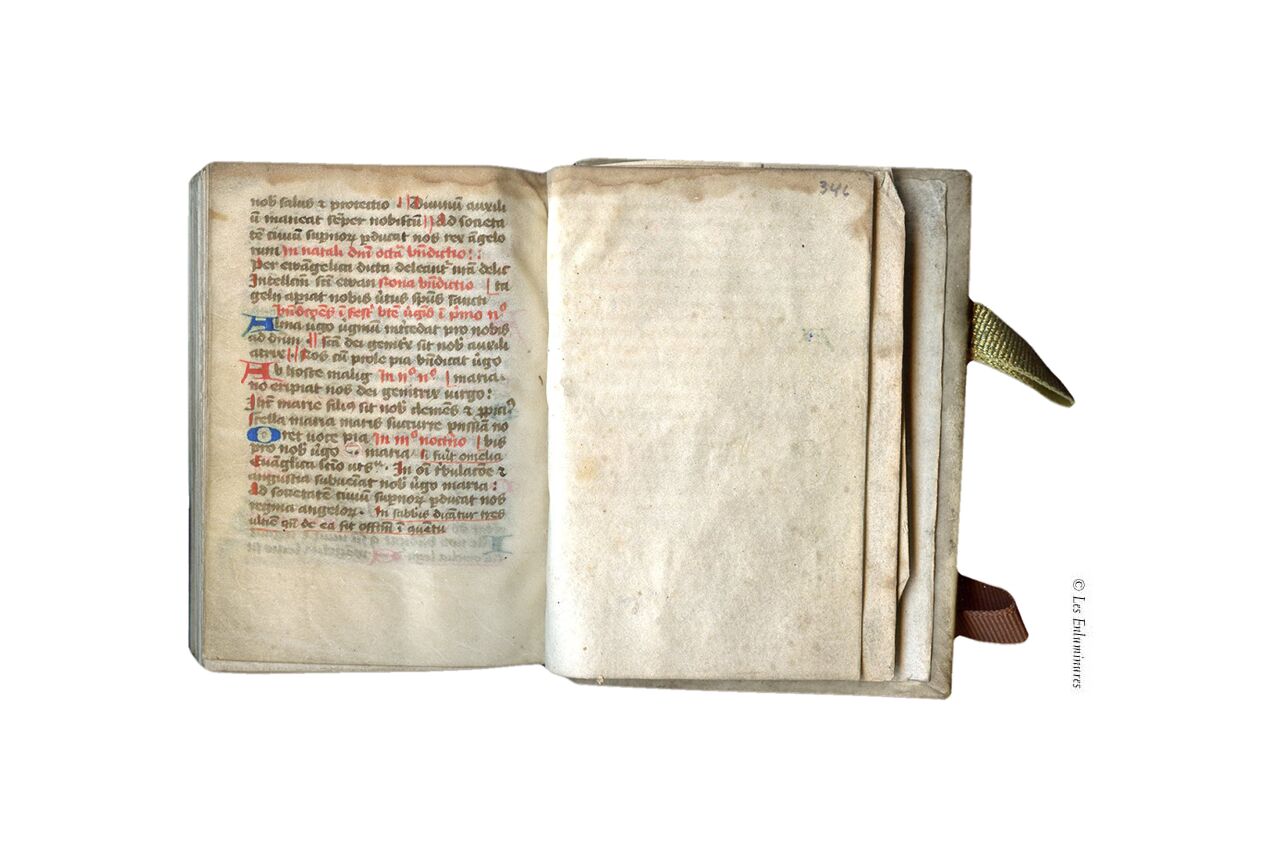 nob̄ salus ⁊ protectio Diuinū auxili
ū maneat sēper nobiscū Ad societa
tē ciuiū supnoꝝ pducat nos rex āgelo
rum In natali dn̄i octa bn̄dictio :
Per ewāgelica dicta deleant᷑ nr̄a delic
Intellcm̄ scī ewan storia bn̄dictio ta
gelij apiat nobis ūtus spūs sancti
bn̄dc̄oēs ī fest bt̄e ūgīs ī pmo nº
Alma ugo ūgnuū int᷑cedat pro nobis
ad dnm̄ scā dei genit᷑x sit nob̄ auxili
atrix Nos cū prole pia bn̄dicat ūgo
Ab hoste malig In nº maria
nō eripiat nos dei genitrix uirgo :
Ih̄c marie filiꝰ sit nob̄ clemēs ⁊ ppiciꝰ
Stella maria maris succurre pissīa nō
Oret uoce pia In mº noctno bis
pro nob̄ ūgo maria Si fuit omelia
Ewāglica lcīo In oī t᷑bulatōe ⁊
angustia subueniat nob̄ ūgo maria :
Ad societatē ciuiū supnoꝝ pducat nos
regina angeloꝝ. In sabb̄is dicātur tres
ultīe qn̄ de ea fit offīm ī quētu
346
© Les Enluminures